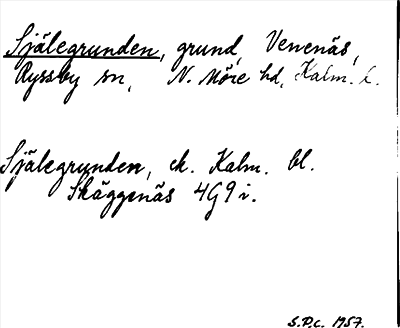 Själegrunden, grund, Venenäs,
Ryssby sn, N. Möre hd, Kalm. l.
Själegrunden, ek. Kalm. bl.
Skäggenäs 4G9i.
S.P.c. 1957.